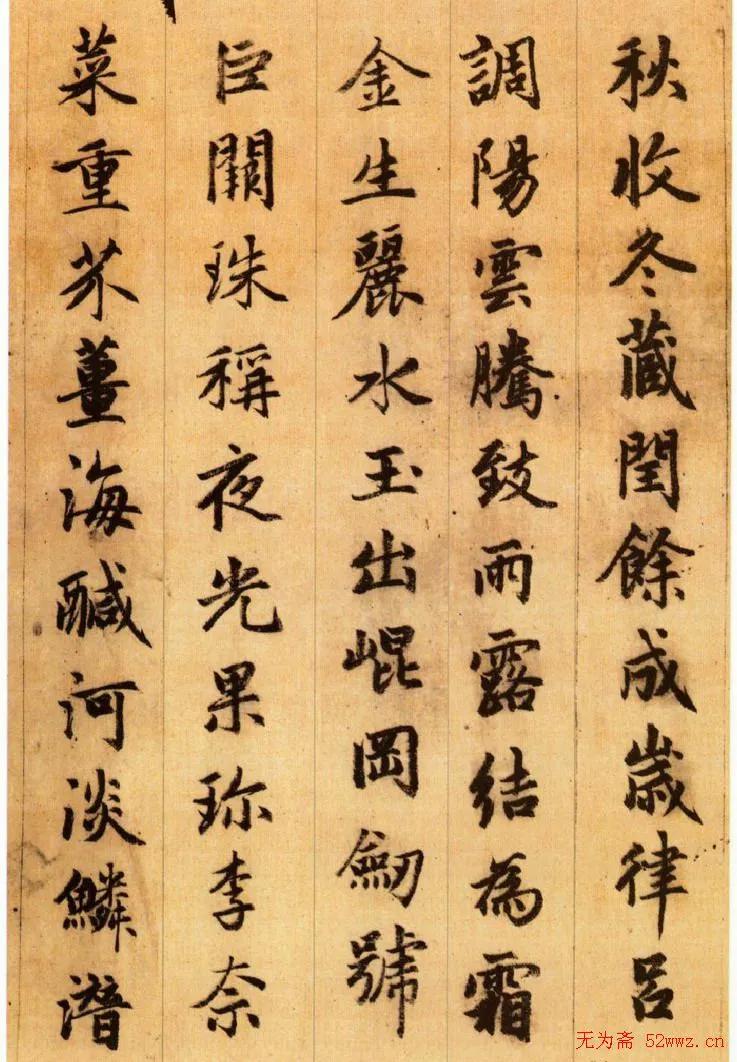 秋收冬蔵閏餘成歲律吕
調陽雲騰致雨露結為霜
金生麗水玉出崐岡劒號
巨闕珠稱夜光果珎李柰
菜重芥薑海醎河淡鱗潛
无为斋 52wwz.cn